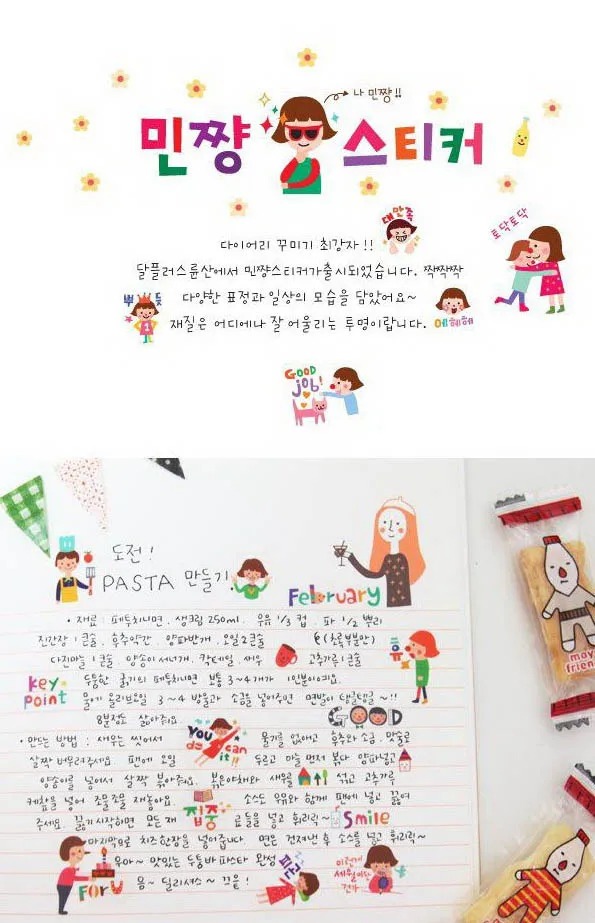 나 민쨩!!
민쨩 스티커
대만족
토닥토닥
다이어리 꾸미기 최강자 !!
달플러스룸산에서 민쨩스티커가출시되었습니다. 짝짝짝
뿌듯
다양한 표정과 일상의 모습을 담았어요~
재질은 어디에나 잘 어울리는 투명이랍니다.
에헤헤
GOOD job!
도전!
PASTA 만들기
February
• 재료 : 페투치니면 . 생크림 250ml . 우유 1/3 컵 . 파 1/2 뿌리
진간장 1큰술 . 후추약간 . 양파반개 . 오일2큰술 (흰부분만)
다진마늘 1큰술 . 양송이 서너개 . 칵테일 새우 고추가루1큰술
흥
key point
두툼한 굵기의 페투치니면 보통 3~4개가 1인분이에요.
물에 올리브오일 3~4 방울과 소금을 넣어주면 면발이 탱글탱글~!!
8분정도 삶아주요
GOOD
• 만드는 방법 : 새우는 씻어서 물기를 없애고 후추와 소금, 맛술로
YOU do can it!!
살짝 버무려주세요. 팬에 오일 두르고 마늘 먼저 볶다 양파넣고
양송이를 넣어서 살짝 볶아주요. 볶은야채와 새우를 섞고 고추가루
케찹을 넣어 조물조물 재놓아요 소스도 우유와 함께 팬에 넣고 끓여
집중
주세요. 끓기시작하면 모든 재료들을 넣고 휘리릭~
Smile
마지막으로 치즈한장을 넣어줍니다 면은 건져낸 후 소스를 넣고 휘리릭~
우아~ 맛있는 두툼바파스타 완성
음~ 딜리셔스~ 끄읕!
FOR U
피곤
이렇게 세월이란건가
may friend